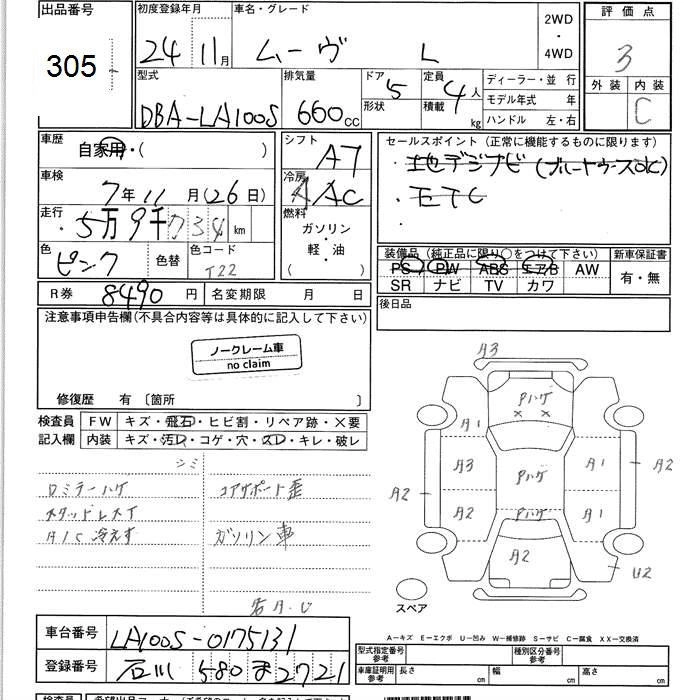 出品番号
305
初度登録年月
24年11月
車名・グレード
ムーヴ L
2WD
・
4WD
評価点
3
外装 内装
C
型式
DBA-LA100S
排気量
660cc
ドア 5
形状
定員 4人
積載 kg
ディーラー・並行
モデル年式 年
ハンドル 左・右
車歴
自家用・( )
車検
7年11月(26日)
走行
5万9千734km
色
ピンク
色替
色コード
T22
シフト
A7
冷房
AAC
燃料
ガソリン
・
軽・油
( )
セールスポイント (正常に機能するものに限ります)
・地デジナビ(ブルートゥースOK)
・ETC
・
装備品 (純正品に限り○をつけて下さい)
PS PW ABS エアB AW
SR ナビ TV カワ
新車保証書
有・無
R券 8490円
名変期限 月 日
後日品
注意事項申告欄(不具合内容等は具体的に記入して下さい)
ノークレーム車
no claim
修復歴 有 〔箇所 〕
検査員
記入欄
FW キズ・飛石・ヒビ割・リペア跡・×要
内装 キズ・汚レ・コゲ・穴・スレ・キレ・破レ
シミ
ロミラーハゲ
スタッドレスT
A/C冷えず
コアサポート歪
ガソリン車
A3
Pハゲ
× ×
A1
A3
Pハゲ
A1
A2
A2
A2
Pハゲ
A1
A2
U2
スペア
A-キズ E-エクボ U-凹み W-補修跡 S-サビ C-腐食 XX-交換済
車台番号
LA100S-0175131
登録番号
石川 580 ま 2721
型式指定番号
参考
種別区分番号
参考
車庫証明用
参考
長さ cm
幅 cm
高さ cm